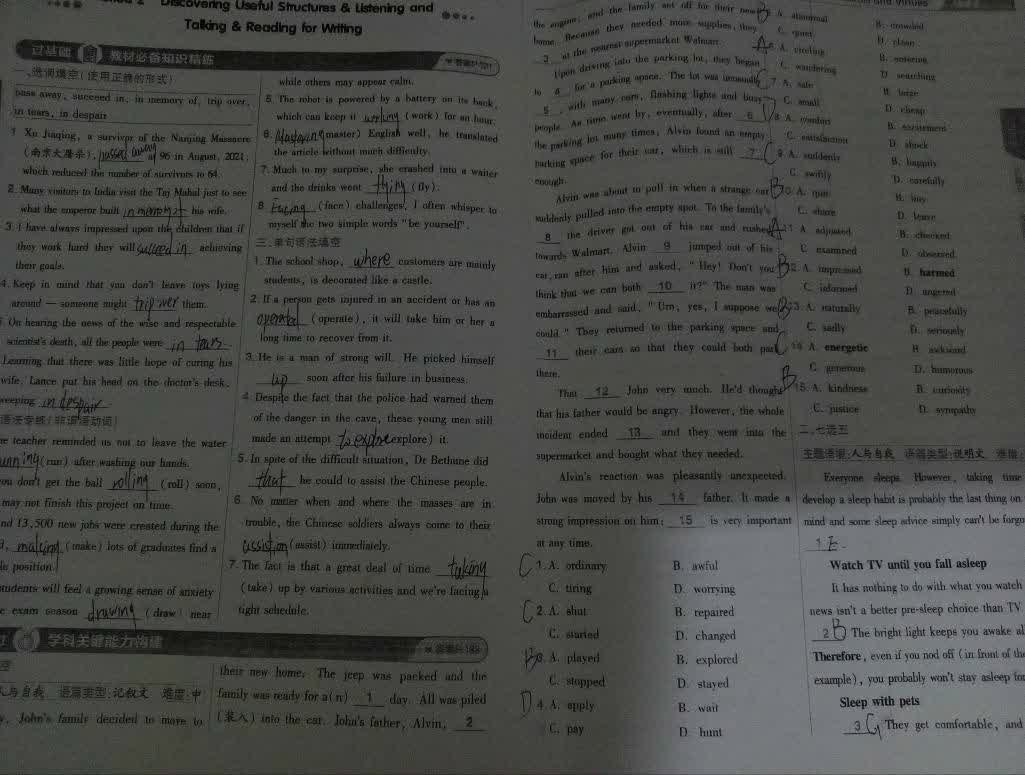 Discovering Useful Structures & Listening and
Talking & Reading for Writing
过基础 教材必备知识精练
一、选词填空(使用正确的形式)
pass away, succeed in, in memory of, trip over,
in tears, in despair
1 Xu Jiaqing, a survivor of the Nanjing Massacre
(南京大屠杀), passed away at 96 in August, 2021,
which reduced the number of survivors to 64.
2. Many visitors to India visit the Taj Mahal just to see
what the emperor built in memory of his wife.
3. I have always impressed upon the children that if
they work hard they will succeed in achieving
their goals.
4. Keep in mind that you don't leave toys lying
around — someone might trip over them.
On hearing the news of the wise and respectable
scientist's death, all the people were in tears.
Learning that there was little hope of curing his
wife, Lance put his head on the doctor's desk,
weeping in despair
语法专练(非谓语动词)
teacher reminded us not to leave the water
running (run) after washing our hands.
you don't get the ball rolling (roll) soon,
may not finish this project on time.
13,500 new jobs were created during the
making (make) lots of graduates find a
position.
students will feel a growing sense of anxiety
exam season drawing (draw) near
while others may appear calm.
5. The robot is powered by a battery on its back,
which can keep it working (work) for an hour.
6. (master) English well, he translated
the article without much difficulty.
7. Much to my surprise, she crashed into a waiter
and the drinks went flying (fly).
8. Facing (face) challenges, I often whisper to
myself the two simple words "be yourself".
三、单句语法填空
1. The school shop, where customers are mainly
students, is decorated like a castle.
2. If a person gets injured in an accident or has an
operated (operate), it will take him or her a
long time to recover from it.
3. He is a man of strong will. He picked himself
up soon after his failure in business.
4. Despite the fact that the police had warned them
of the danger in the cave, these young men still
made an attempt to explore (explore) it.
5. In spite of the difficult situation, Dr Bethune did
that he could to assist the Chinese people.
6. No matter when and where the masses are in
trouble, the Chinese soldiers always come to their
assistion (assist) immediately.
7. The fact is that a great deal of time taking
(take) up by various activities and we're facing a
tight schedule.
学科关键能力构建
人与自我 语篇类型:记叙文 难度:中
John's family decided to move to
their new home. The jeep was packed and the
family was ready for a(n) 1 day. All was piled
(装入) into the car. John's father, Alvin, 2
the engine, and the family set off for their new
home. Because they needed more supplies, they
3 at the nearest supermarket Walmart.
Upon driving into the parking lot, they began
to 4 for a parking space. The lot was unusually
5 with many cars, flashing lights and busy
people. As time went by, eventually, after 6
the parking lot many times, Alvin found an empty
parking space for their car, which is still 7
enough.
Alvin was about to pull in when a strange car
suddenly pulled into the empty spot. To the family's
8 the driver got out of his car and rushed
towards Walmart. Alvin 9 jumped out of his
car, ran after him and asked, "Hey! Don't you
think that we can both 10 it?" The man was
embarrassed and said, "Um, yes, I suppose we
could." They returned to the parking space and
11 their cars so that they could both park
there.
That 12 John very much. He'd thought
that his father would be angry. However, the whole
incident ended 13 and they went into the
supermarket and bought what they needed.
Alvin's reaction was pleasantly unexpected.
John was moved by his 14 father. It made a
strong impression on him: 15 is very important
at any time.
C 1. A. ordinary B. awful
C. tiring D. worrying
C 2. A. shut B. repaired
C. started D. changed
B 3. A. played B. explored
C. stopped D. stayed
D 4. A. apply B. wait
C. pay D. hunt
B 5. A. abnormal B. crowded
C. quiet D. clean
A 6. A. circling B. entering
C. wandering D. searching
C 7. A. safe B. large
C. small D. cheap
8. A. comfort B. excitement
C. satisfaction D. shock
C 9. A. suddenly B. happily
C. swiftly D. carefully
10. A. rent B. buy
C. share D. leave
A 11. A. adjusted B. checked
C. examined D. observed
B 12. A. impressed B. harmed
C. informed D. angered
B 13. A. naturally B. peacefully
C. sadly D. seriously
C 14. A. energetic B. awkward
C. generous D. humorous
B 15. A. kindness B. curiosity
C. justice D. sympathy
二、七选五
主题语境:人与自我 语篇类型:说明文 难度:
Everyone sleeps. However, taking time
develop a sleep habit is probably the last thing on
mind and some sleep advice simply can't be
1 E.
Watch TV until you fall asleep
It has nothing to do with what you watch
news isn't a better pre-sleep choice than TV
2 B The bright light keeps you awake
Therefore, even if you nod off (in front of the
example), you probably won't stay asleep for
Sleep with pets
3 G They get comfortable, and